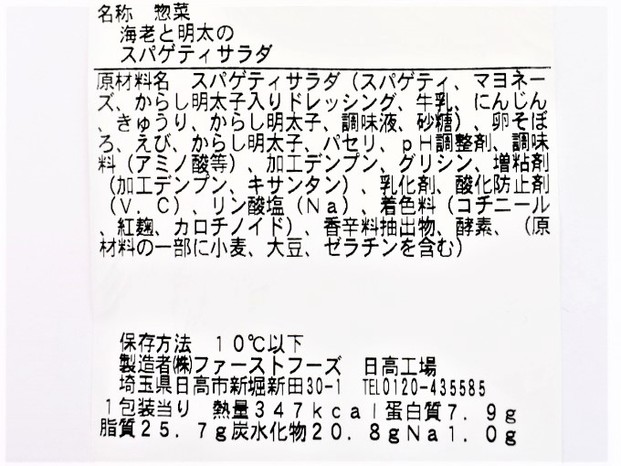 名称　惣菜
海老と明太の
スパゲティサラダ
原材料名　スパゲティサラダ（スパゲティ、マヨネー
ズ、からし明太子入りドレッシング、牛乳、にんじん
、きゅうり、からし明太子、調味液、砂糖）、卵そぼ
ろ、えび、からし明太子、パセリ、ｐＨ調整剤、調味
料（アミノ酸等）、加工デンプン、グリシン、増粘剤
（加工デンプン、キサンタン）、乳化剤、酸化防止剤
（Ｖ．Ｃ）、リン酸塩（Ｎａ）、着色料（コチニール
、紅麹、カロチノイド）、香辛料抽出物、酵素、（原
材料の一部に小麦、大豆、ゼラチンを含む）
保存方法　１０℃以下
製造者㈱ファーストフーズ　日高工場
埼玉県日高市新堀新田30-1　TEL0120-435585
１包装当り　熱量３４７ｋｃａｌ蛋白質７．９ｇ
脂質２５．７ｇ炭水化物２０．８ｇＮａ１．０ｇ